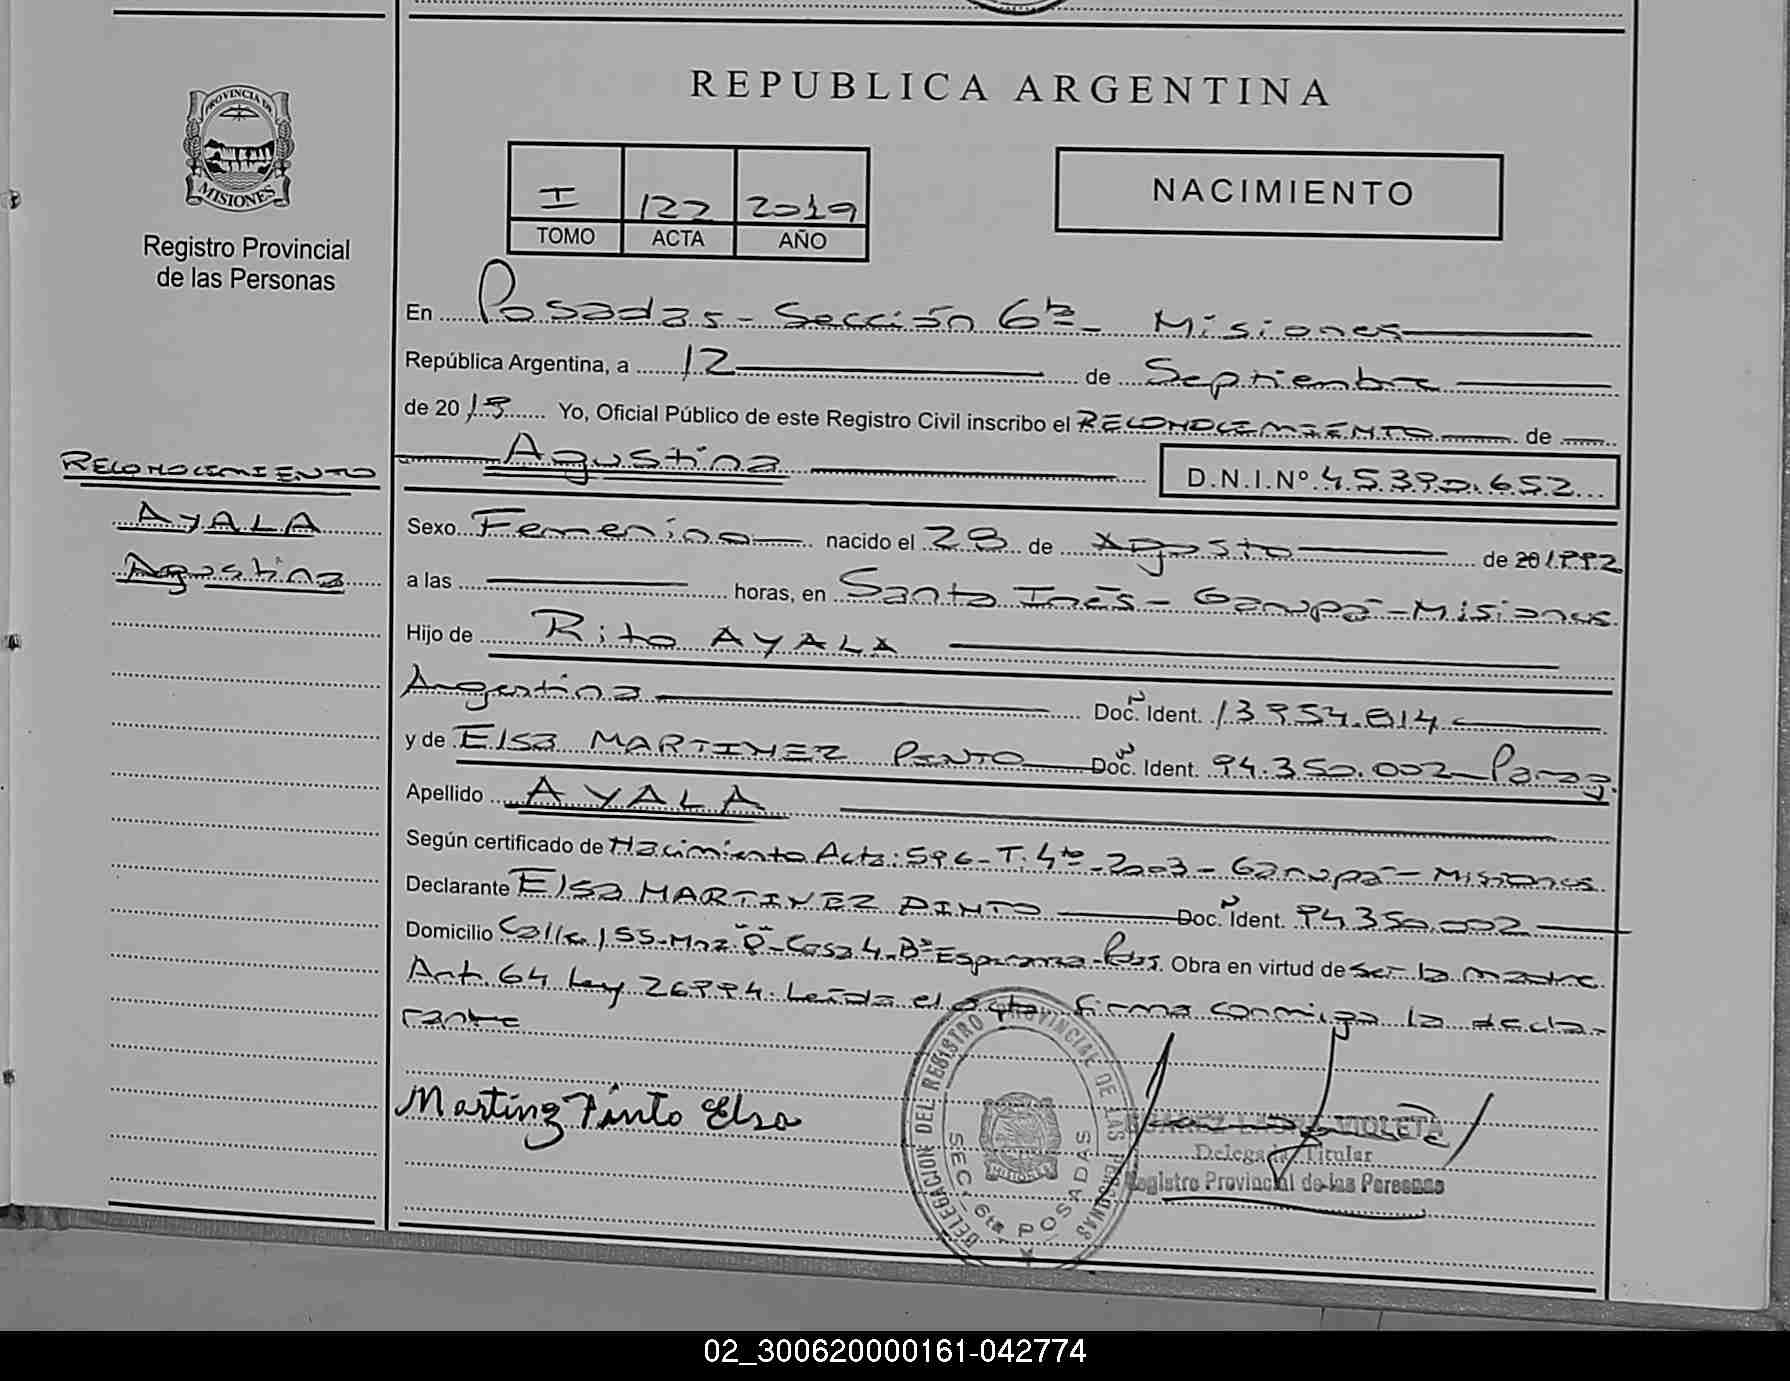 REPUBLICA ARGENTINA
PROVINCIA DE
MISIONES
Registro Provincial
de las Personas
I 122 2019
TOMO ACTA AÑO
NACIMIENTO
En Posadas - Sección 6ta - Misiones
República Argentina, a 12 de Septiembre
de 2019 Yo, Oficial Público de este Registro Civil inscribo el RECONOCIMIENTO de
Agustina D.N.I.Nº 45.390.652
RECONOCIMIENTO
AYALA
Agustina
Sexo Femenino nacido el 28 de Agosto de 20 1992
a las horas, en Santa Inés - Garupá - Misiones
Hijo de Rito AYALA
Argentina Doc. Ident. 13954.814
y de Elsa MARTINEZ PINTO Doc. Ident. 94.350.002 - Parag.
Apellido AYALA
Según certificado de Nacimiento Acta: 596 - T. 4to - 2003 - Garupá - Misiones
Declarante Elsa MARTINEZ PINTO Doc. Ident. 94.350.002
Domicilio Calle 155 - Mnz. "8" - Casa 4 - Bº Esperanza - Pdas. Obra en virtud de ser la madre
Art. 64 Ley 26994. Leída el acta firma conmigo la decla-
rante
Martinez Pinto Elsa
DELEGACION DEL REGISTRO PROVINCIAL DE LAS PERSONAS
SEC. 6ta POSADAS
VIOLETA
Delegada Titular
Registro Provincial de las Personas
02_300620000161-042774